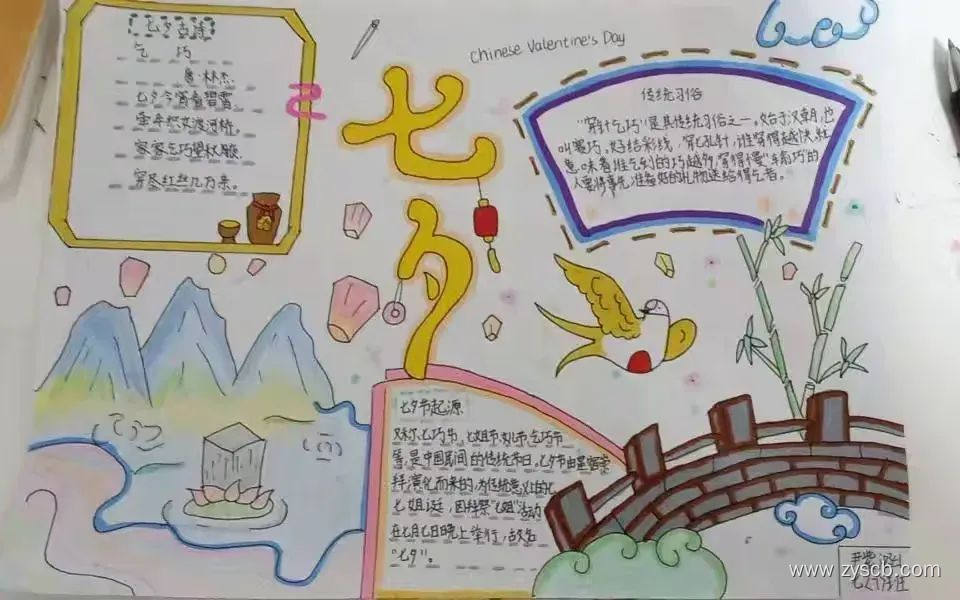 七夕古诗
乞 巧
唐·林杰
七夕今宵看碧霄
牵牛织女渡河桥
家家乞巧望秋月
穿尽红丝几万条。
Chinese Valentine's Day
七夕
传统习俗
"穿针乞巧"是其传统习俗之一,始于汉朝,也
叫赛巧,好结彩线,穿七孔针,谁穿得越快,就
意味着谁乞到的巧越多,穿得慢"输巧"的
人要将事先准备好的礼物送给得巧者。
七夕节起源
又称七巧节、七姐节、乞巧节
等,是中国民间的传统节日,七夕节由星宿崇
拜演化而来的,为传统意义上的
七姐诞,因拜祭"七姐"活动
在七月七日晚上举行,故名
"七夕"。
www.zyscb.com